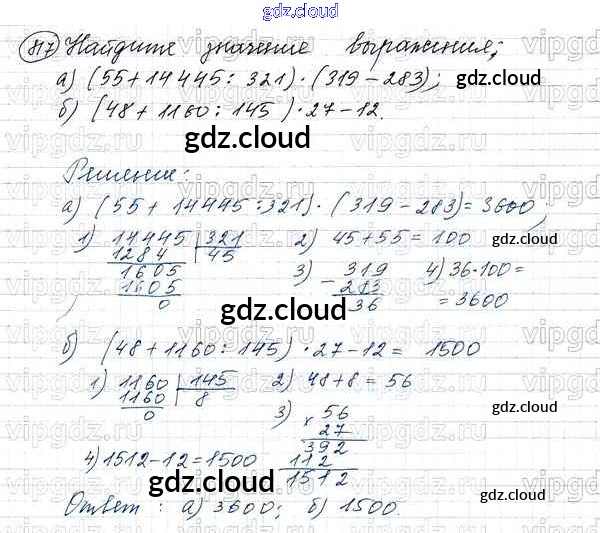 gdz.cloud
817 Найдите значение выражения;
а) (55+14445:321)·(319-283);
б) (48+1160:145)·27-12.
Решение:
а) (55+14445:321)·(319-283)=3600;
1) 14445 321
1284 45
1605
1605
0
2) 45+55=100
3) 319
- 283
36
4) 36·100=
=3600
б) (48+1160:145)·27-12= 1500
1) 1160 145
1160 8
0
2) 48+8=56
3) 56
× 27
392
112
1512
4) 1512-12=1500
Ответ: а) 3600; б) 1500.
gdz.cloud
gdz.cloud
gdz.cloud
gdz.cloud
gdz.cloud
gdz.cloud
gdz.cloud
vipgdz.ru